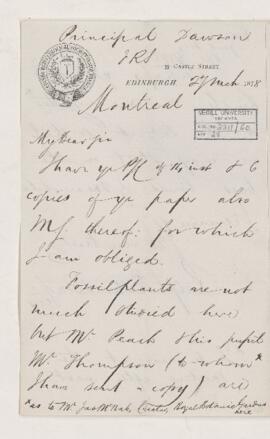 Principal Dawson
FRS
CASTLE STREET,
EDINBURGH 27 Mch 1878
Montreal
McGILL UNIVERSITY
ARCHIVES
ACC. NO. 2211/60
REF. 28
My Dear Sir
I have yr P/C of 14 inst & 6
copies of yr paper also
MS thereof: for which
I am obliged.
Fossil plants are not
much studied here
but Mr. Peach & his pupil
Mr Thompson (to whom*
I have sent a copy) are
*as to Mr. Jas McNab, Curator, Royal Botanic Gardens
here